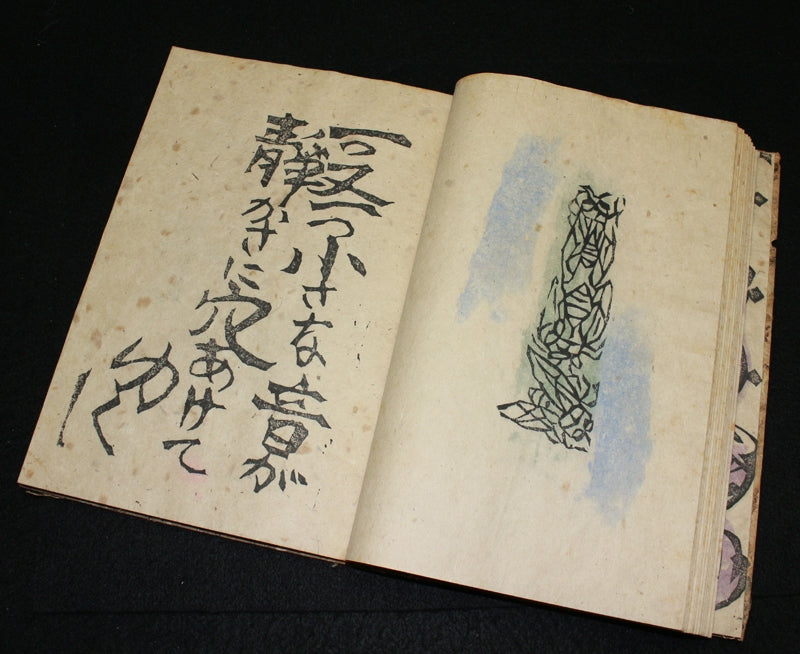 一つ又一つ小さな音が
静かさに穴あけて
ゆく